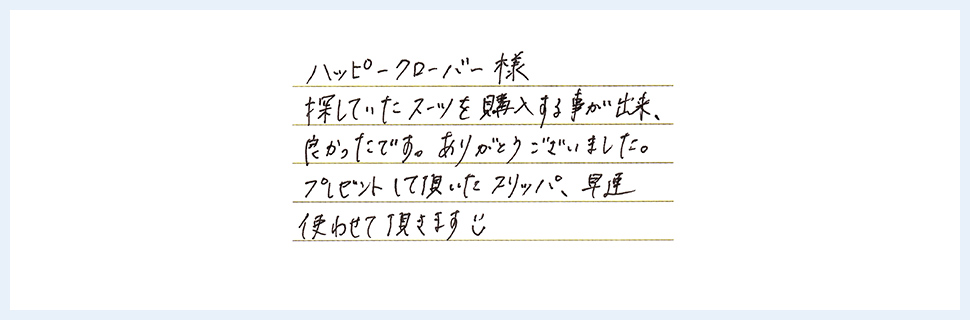 ハッピークローバー様
探していたスーツを購入する事が出来、
良かったです。ありがとうございました。
プレゼントして頂いたスリッパ、早速
使わせて頂きます